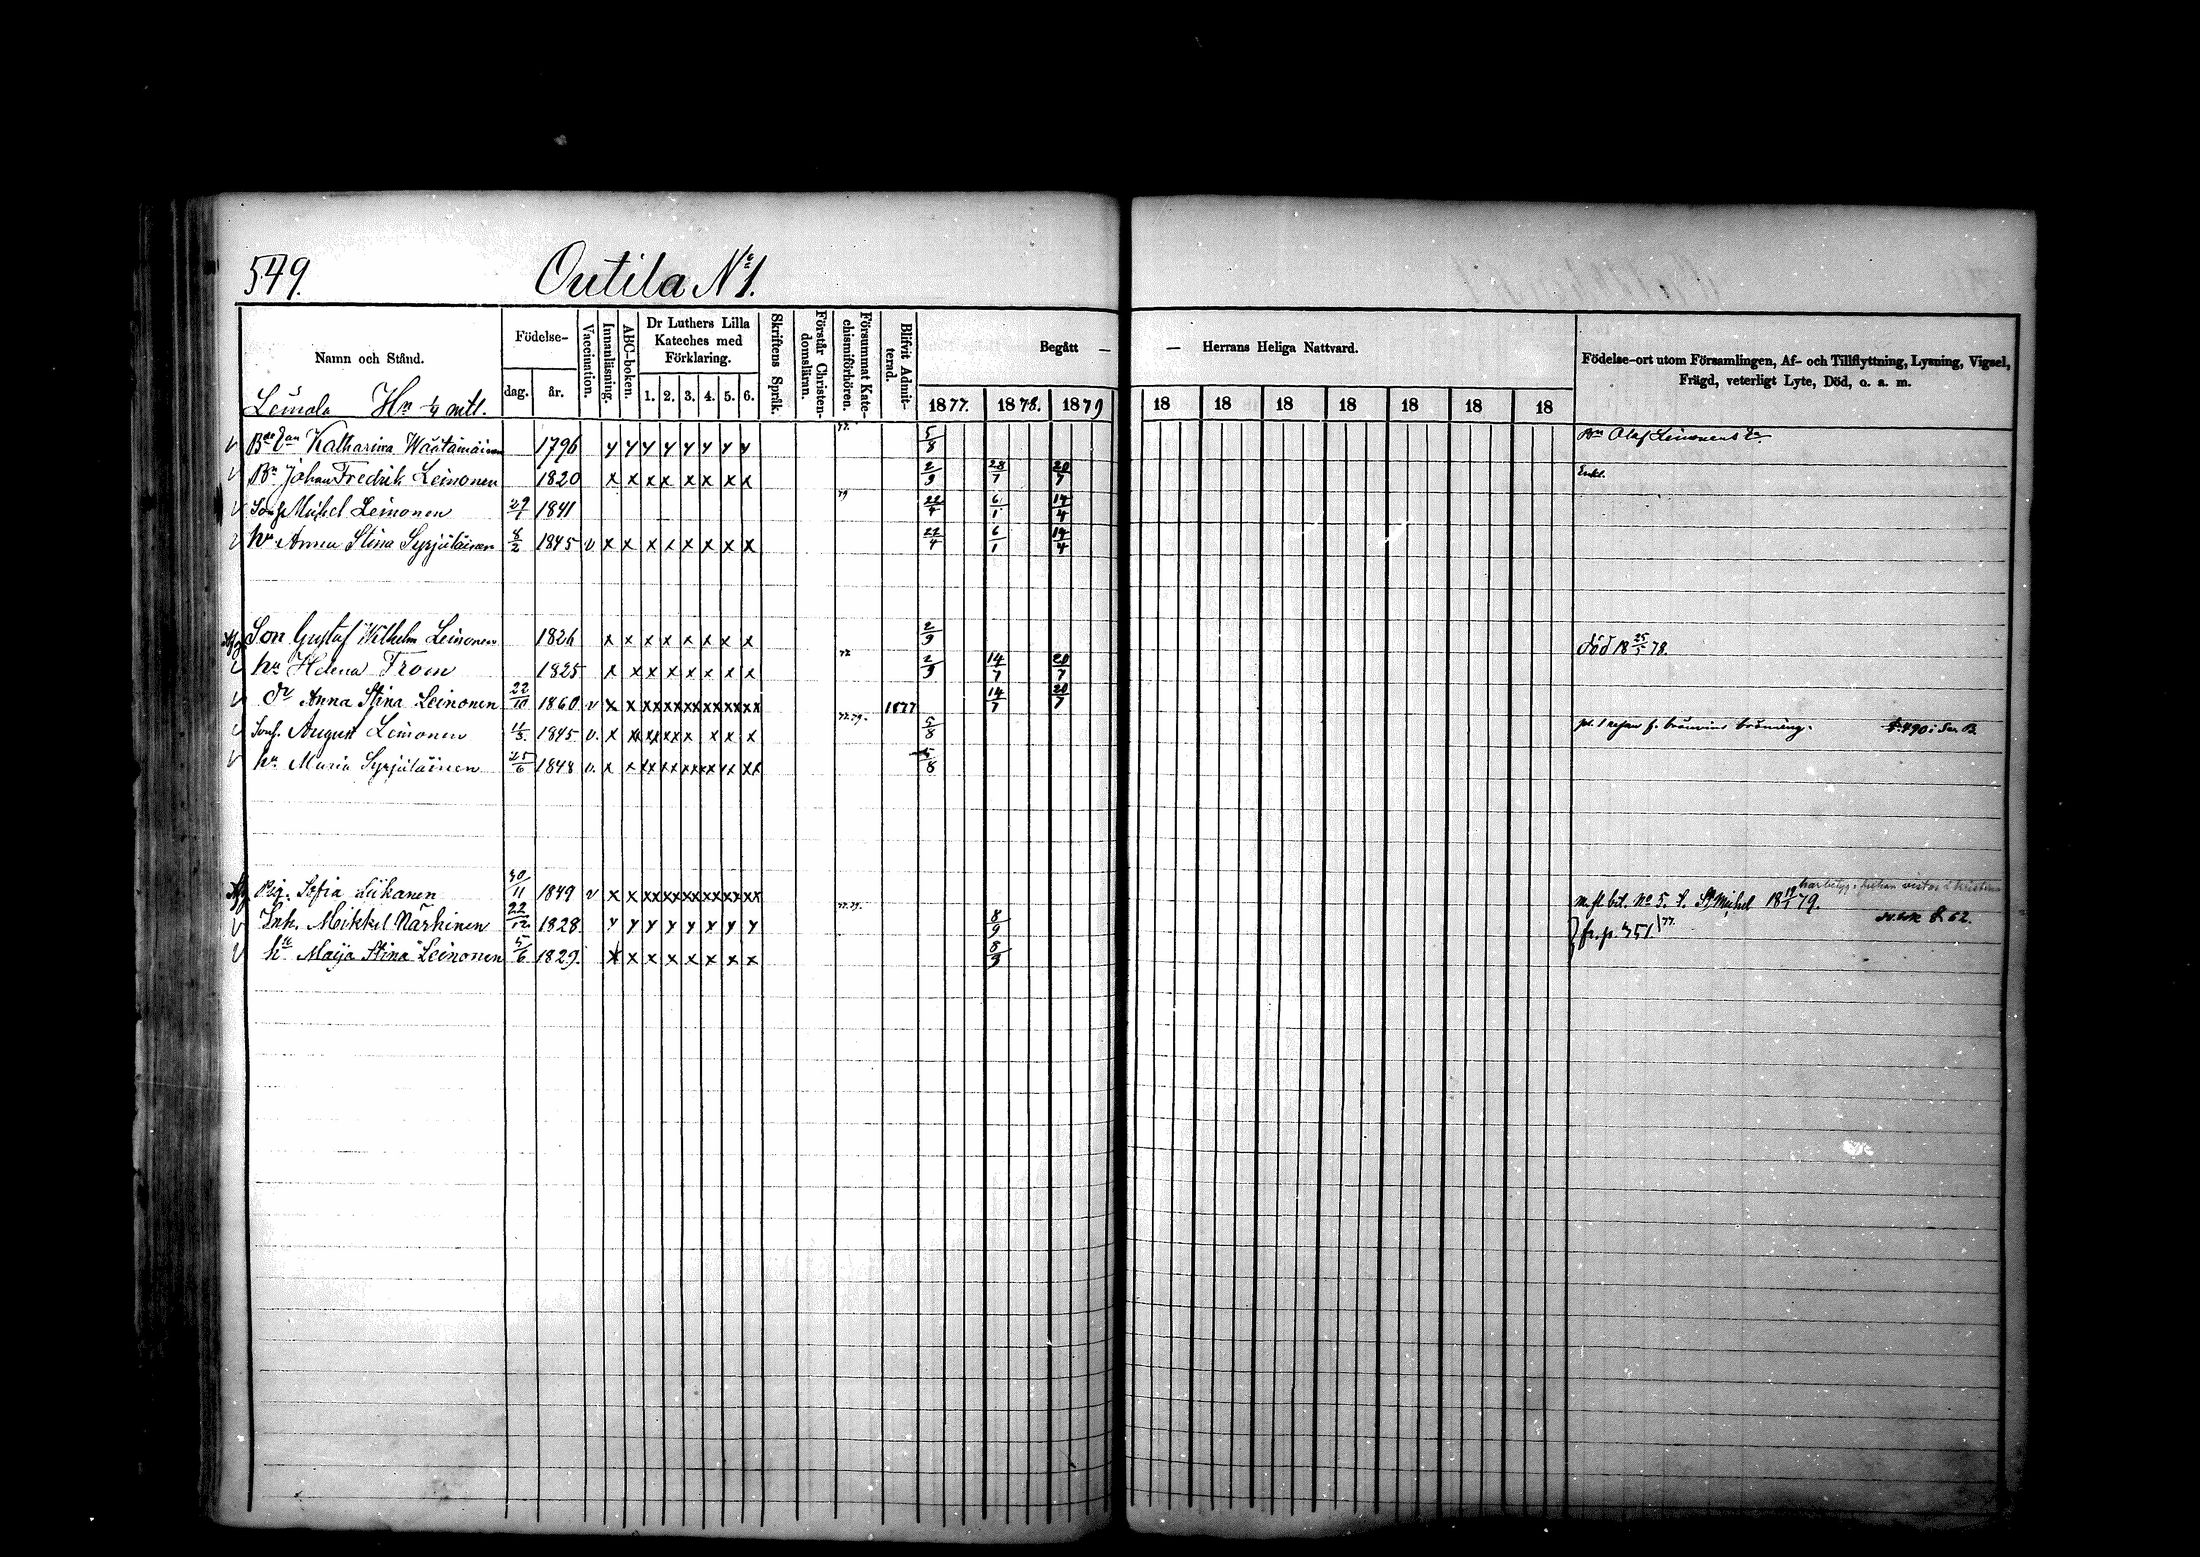 549.
Outila No 1.
Namn och Stånd.
Födelse-
dag.
år.
Vaccination.
Innanläsning.
ABC-boken.
Dr Luthers Lilla
Kateches med
Förklaring.
1. 2. 3. 4. 5. 6.
Skriftens Språk.
Förstår Christen-
domsläran.
Försummat Kate-
chismiförhören.
Blifvit Admit-
terad.
Begått —
— Herrans Heliga Nattvard.
1877. 1878. 1879 18 18 18 18 18 18 18
Födelse-ort utom Församlingen, Af- och Tillflyttning, Lysning, Vigsel,
Frägd, veterligt Lyte, Död, o. a. m.
Leinola Hn 1/4 mtl.
v Katharina Wäätämöinen 1796 y y y y y y y y 77. 5/8 Bn Olaf Leinonens Ea
v Bn Johan Fredrik Leinonen 1820 x x x x x x x 2/9 28/7 20/7 Enkl.
v Mickel Leinonen 29/1 1841 79 22/4 6/1 14/4
v hu Anna Stina Syrjäläinen 8/2 1845 v x x x x x x x x 22/4 6/1 14/4
Son Gustaf Wilhelm Leinonen 1826 x x x x x x x x 2/9 död 18 25/5 78.
v hu Helena From 1825 x x x x x x x x 2/9 14/7 20/7
v dr Anna Stina Leinonen 22/10 1860 v x x xx xx xx xx xx xx 1877 14/7 20/7
v August Leinonen 11/3 1845 v. 77.79. 5/8 S. 490 i Ser. B.
v hu Maria Syrjäläinen 25/6 1848 v. x x xx xx xx xx xx xx 5/8
Pig. Sofia Liikanen 30/11 1849 v x x xx xx xx xx xx xx m. fl. bet. No 5. t. St Michel 18 79.
v Inh. Mikkel Närhinen 22/12 1828 y y y y y y y y 77.79. 8/9 fr. p. 451 77. S. 62.
v hu Maija Stina Leinonen 5/6 1829. x x x x x x x x 8/9